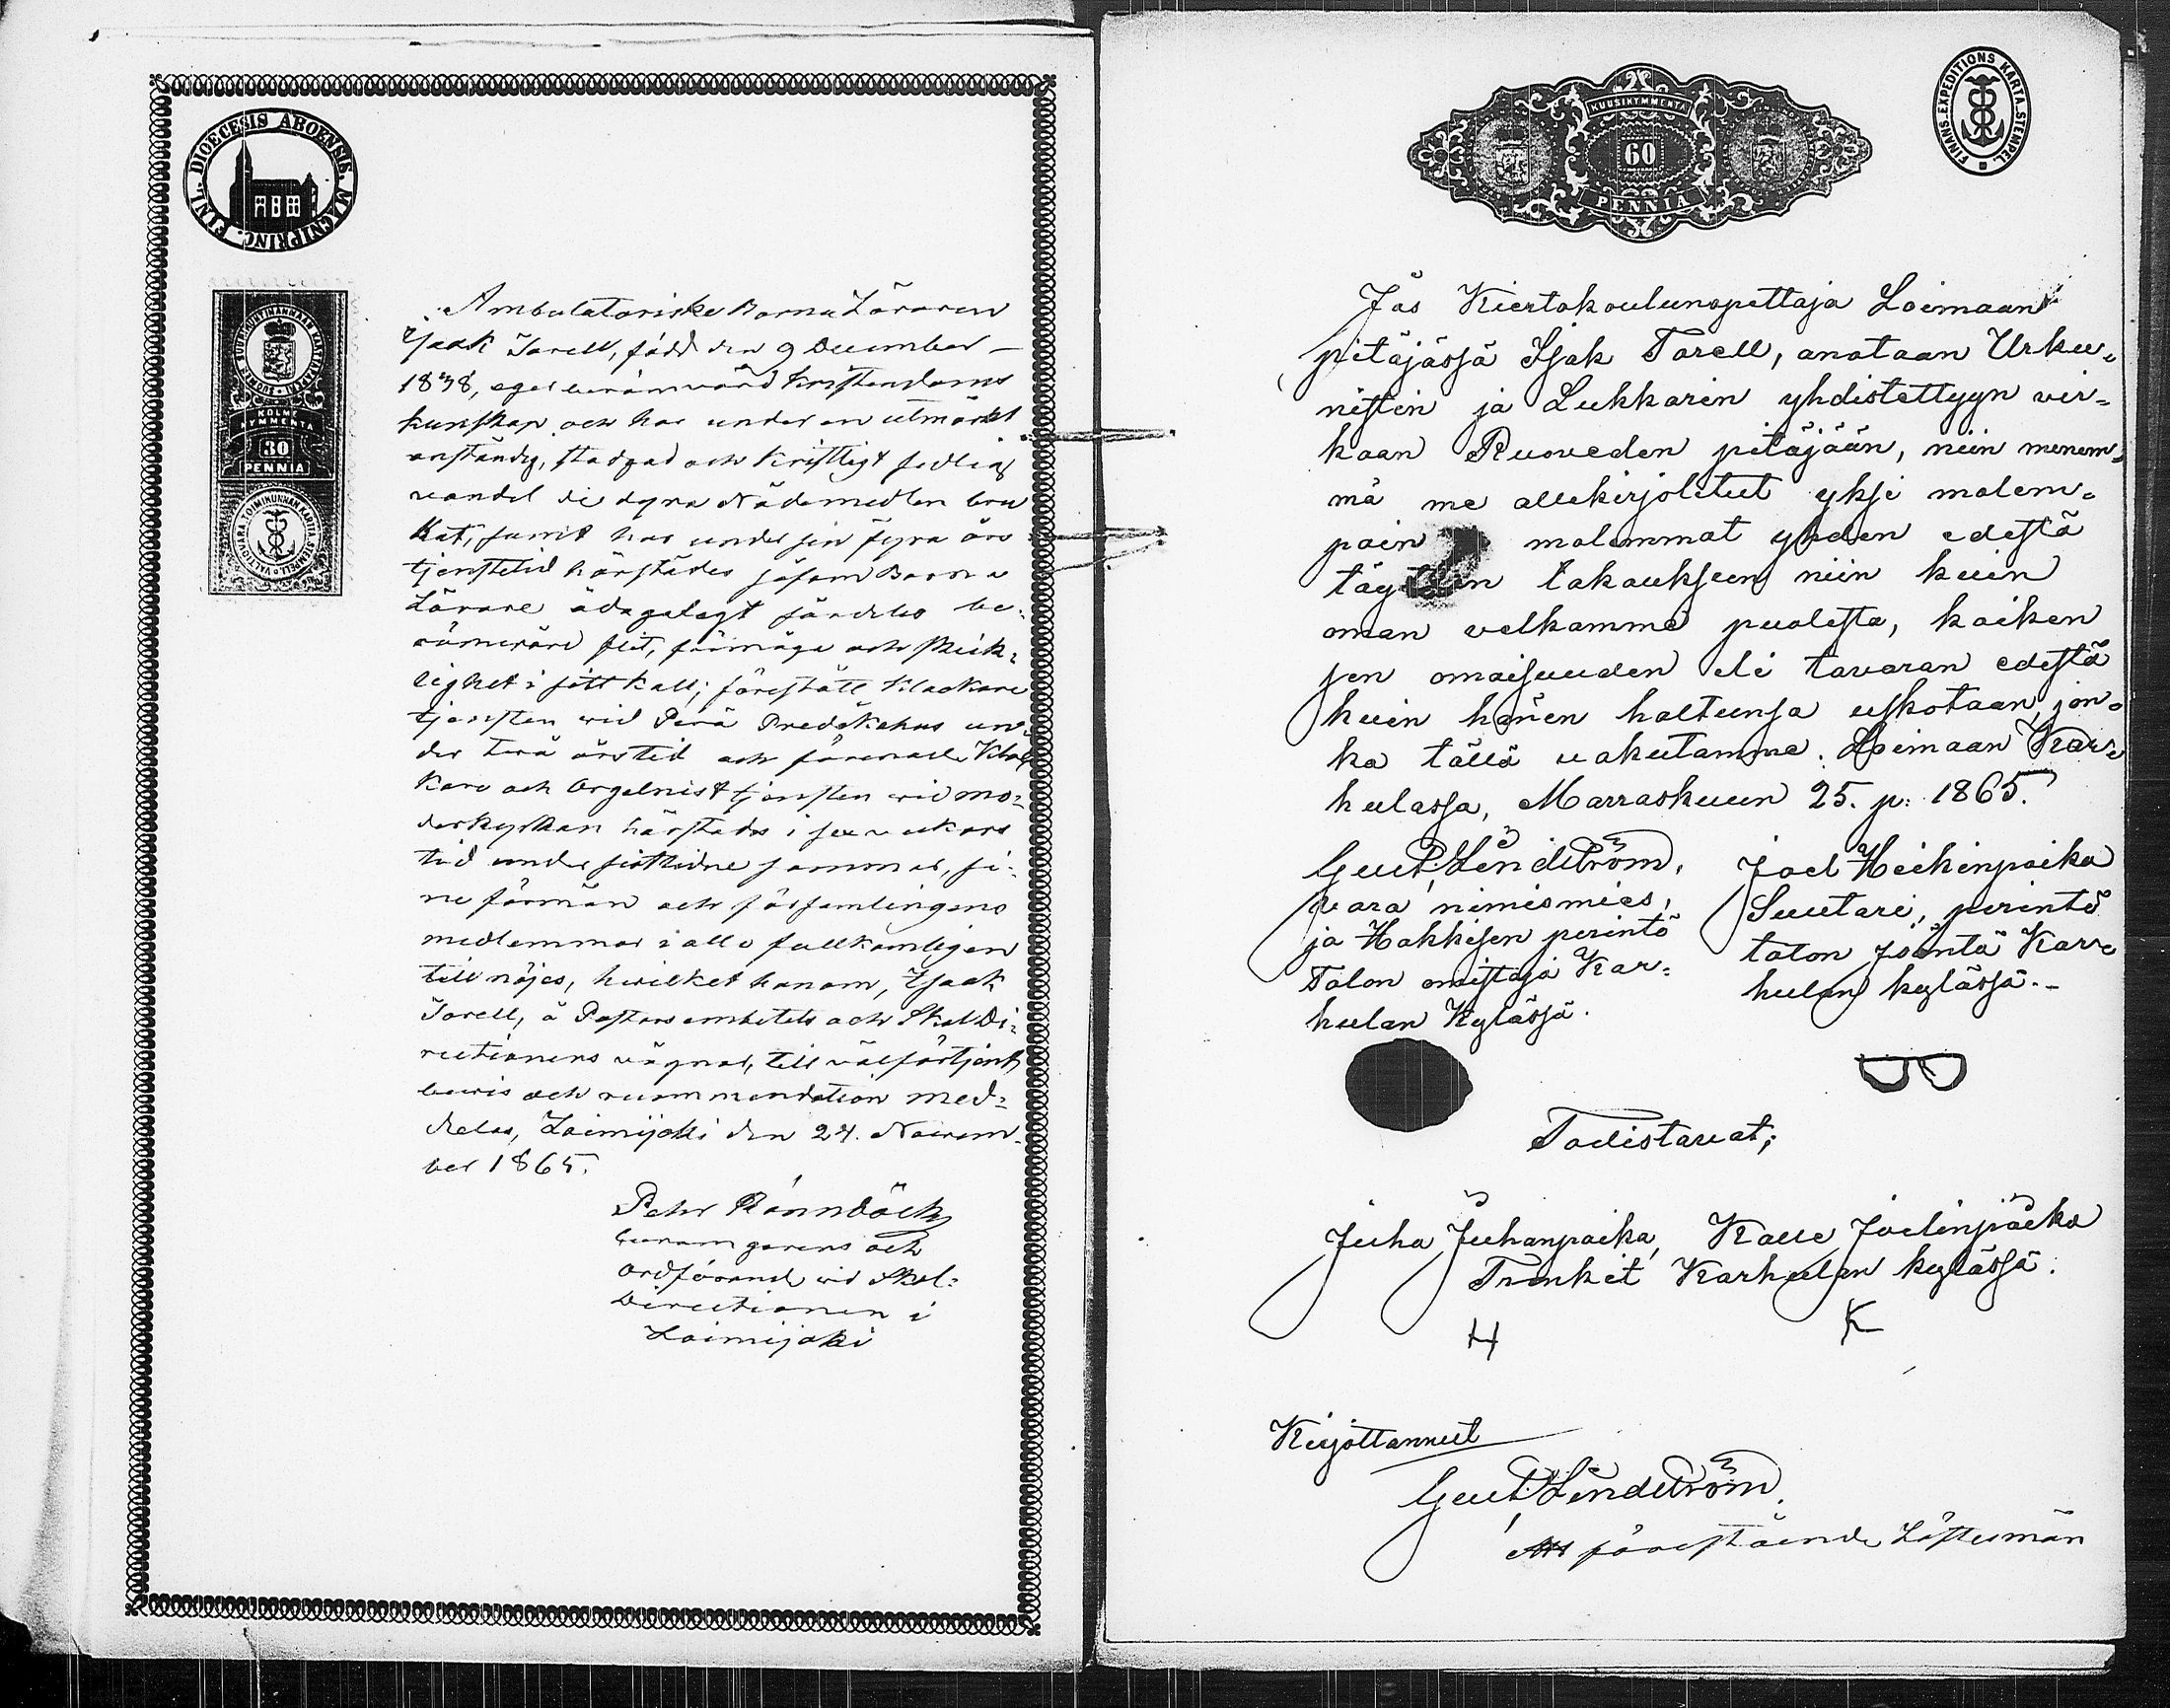 FINL. DIOECESIS ABOENSIS. MAGNIPRINC.
KOLME
KYMMENTÄ
30
PENNIÄ
Ambulatoriske Barna Läraren
Isaak Torell, född den 9 December
1838, eger berömvärd Kristendoms
kunskap och har under en utmärkt
anständig, stadgad och Kristligt sedlig
vandel de dyra Nådemedlen bru
kat, samt har under sin fyra års
tjenstetid härstädes såsom Barna
Lärare ådagalagt särdeles be-
römvärd flit, förmåga och skick-
lighet i sitt kall; förestått Klockare
tjensten vid Perä Predikohus un-
der två årstid och förenade Kloc
kare och Orgelnist tjensten vid mo-
derkyrkan härstädes i sex veckors
tid under sistlidne sommar, si-
ne förmän och församlingens
medlemmar i allo fullkomligen
till nöjes, hvilket honom, Isaak
Torell, å Pastorsembetets och Skol Di-
rectionens vägnar, till välförtjent
bevis och recommendation med-
delas, Loimijoki den 24. Novem-
ber 1865.
Pehr Rönnbäck
curam gerens och
Ordförande vid Skol-
Directionen i
Loimijoki
FINANS-EXPEDITIONS KARTA-STEMPEL.
KUUSIKYMMENTÄ
60
PENNIÄ
Jos Kiertokoulunopettaja Loimaan
pitäjässä Isak Torell, anotaan Urku-
nistin ja Lukkarin yhdistettyyn vir-
kaan Ruoveden pitäjään, niin menem-
mä me allekirjoitetut yksi molem-
pain molemmat yhden edestä
takaukseen niin kuin
oman velkamme puolesta, kaiken
sen omaisuuden eli tavaran edestä
kuin hänen haltunsa uskotaan, jon-
ka tällä vakutamme. Loimaan Kar-
hulassa, Marraskuun 25. p: 1865.
Gust. Lindström,
vara nimismies,
ja Hakkisen perintö
Talon omistaja Kar-
hulan Kylässä.
Joel Heikinpoika
Suutari, perintö
talon isäntä Kar-
hulan kylässä.-
Todistavat;
Juha Juhanpoika, Kalle Joelinpoika
Trenkit Karhulan kylässä.
H K
Kirjottannut
Gust. Lindström.
Att förestående Löftesmän